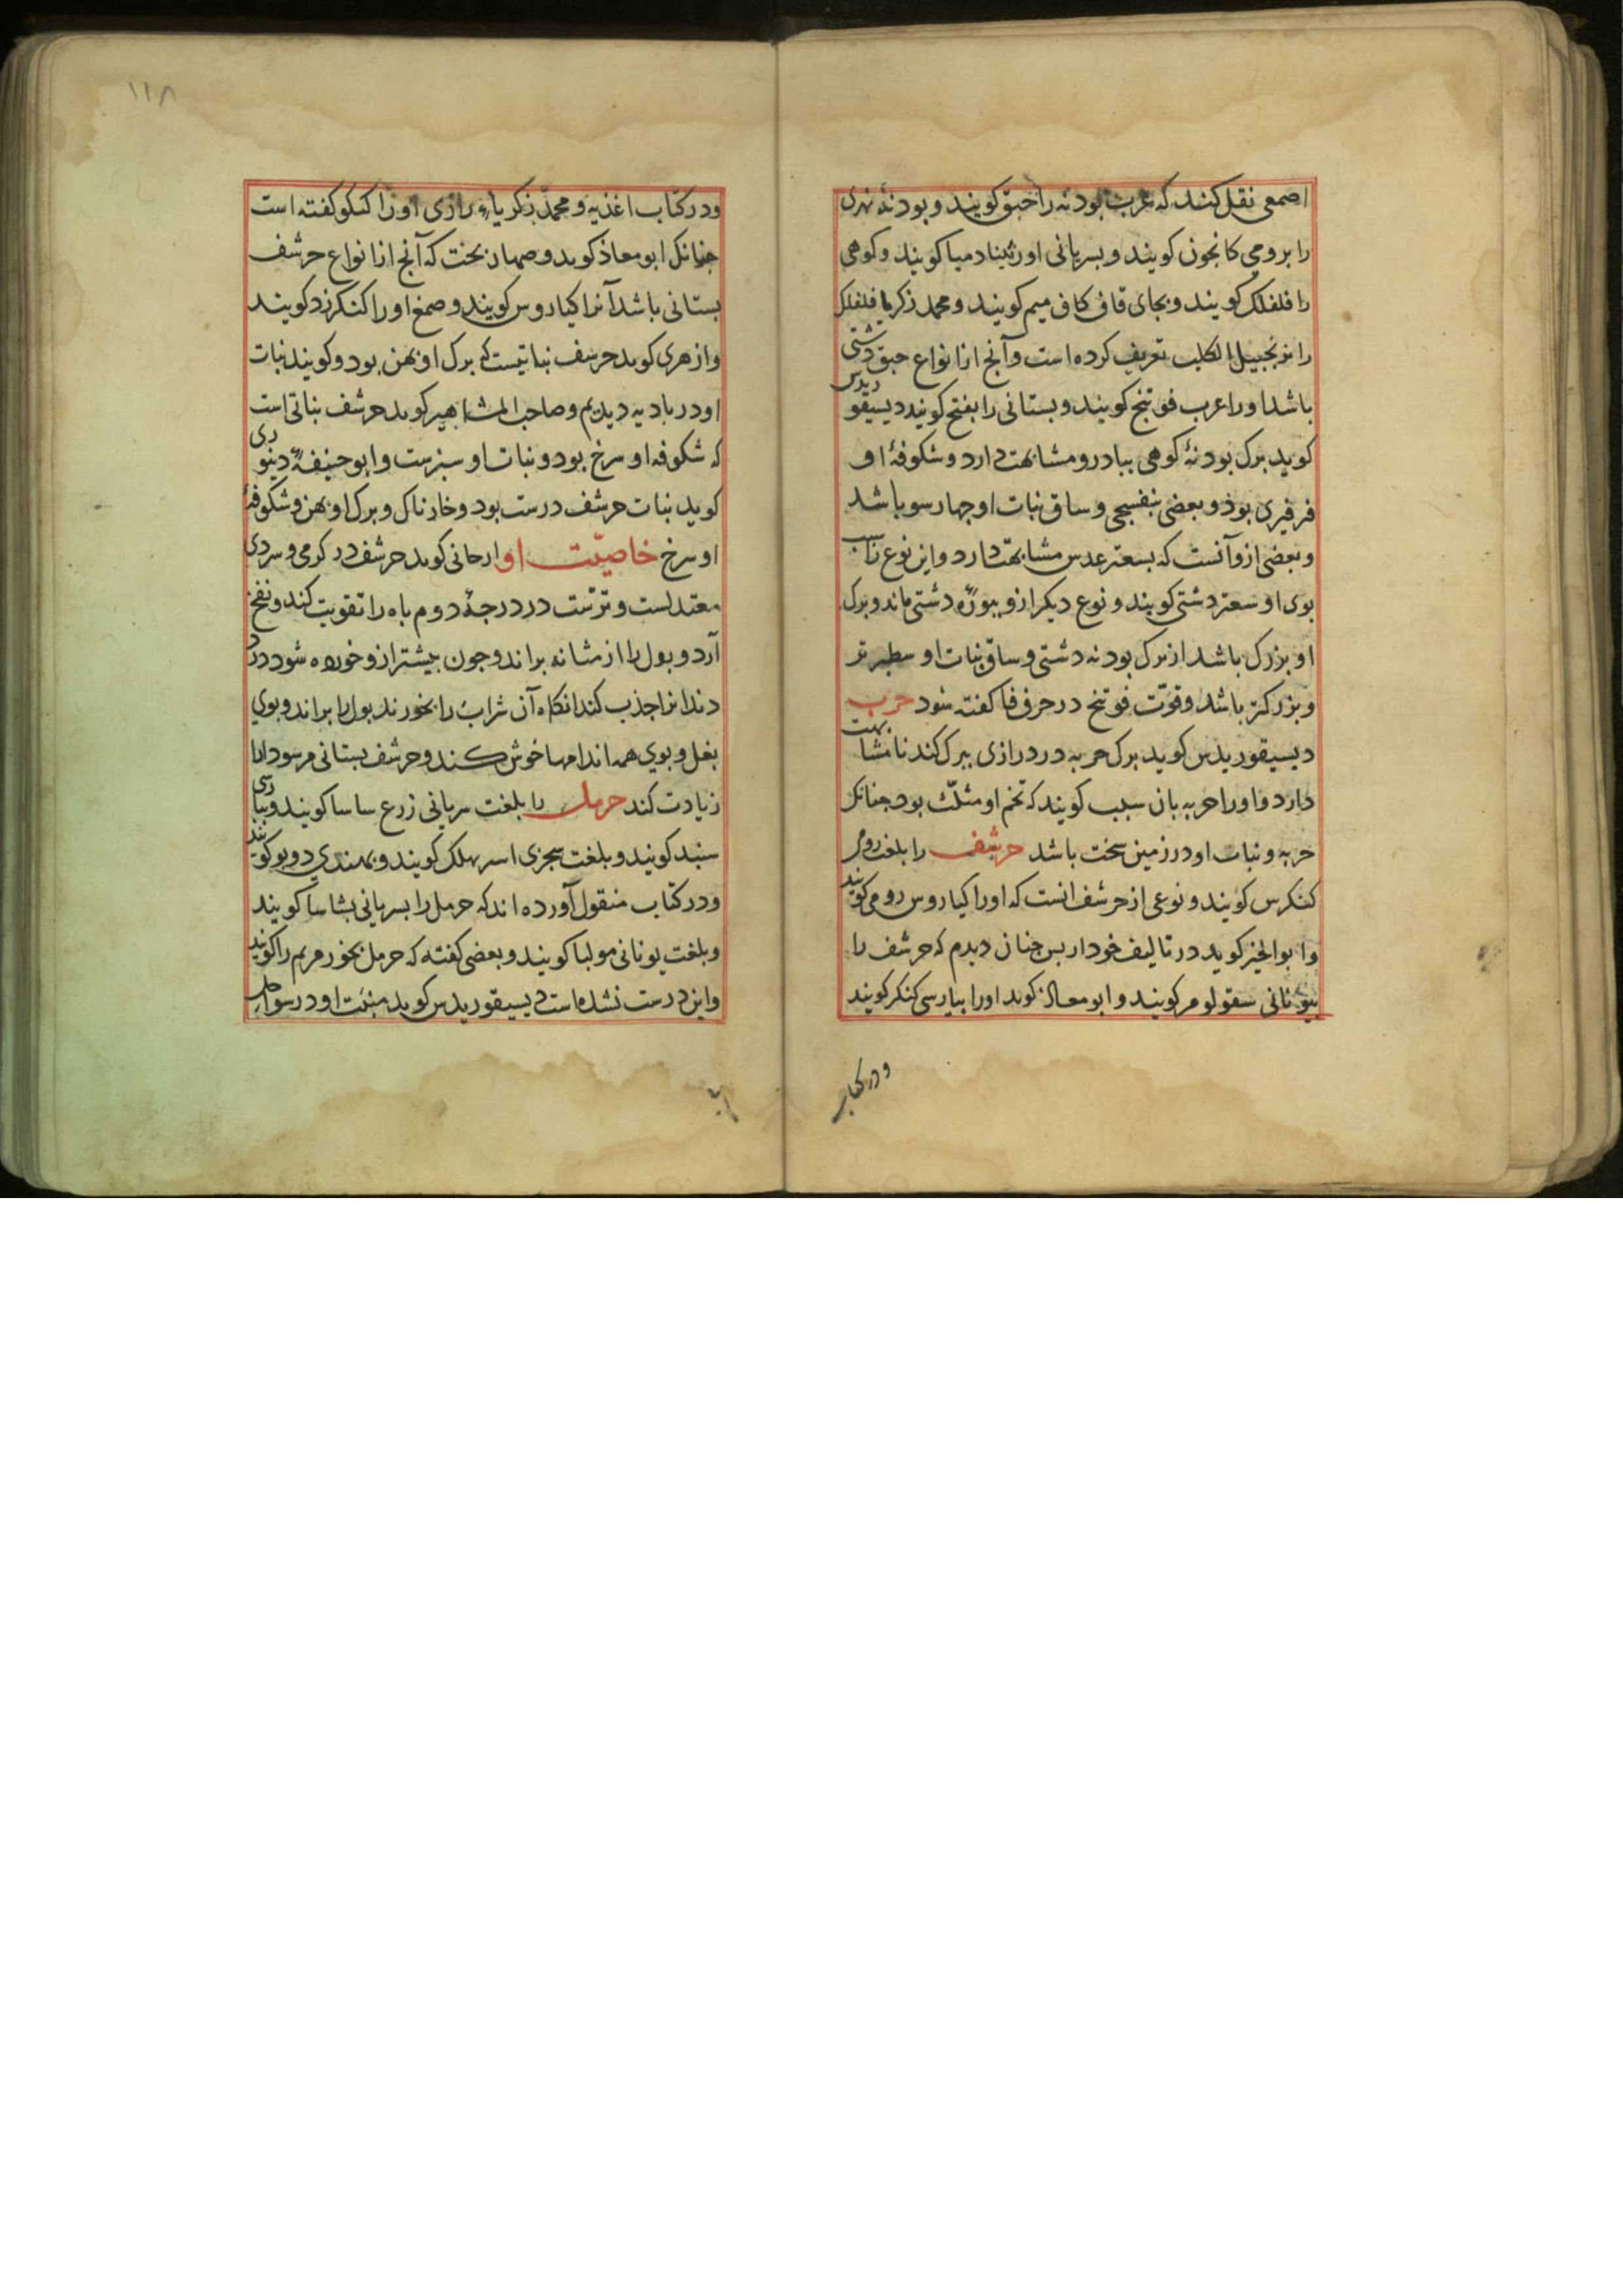 اصمعی نقل کنند که عرب بودنه را حبق کویند و بودنهٔ نهری
را برومی کانجون کویند و بسریانی اورثینا دمیا کویند و کوهی
را فلفلک کویند و بجای قاف کاف میم کویند و محمد زکریا فلفلک
را بزنجبیل الکلب تعریف کرده است و آنج از انواع حبق دشتی
باشد اورا عرب فوتنج کویند و بستانی را بفتح کویند دیسیقوریدس
کوید برک بودنهٔ کوهی ببادرو مشابهت دارد و شکوفهٔ او
فرفیری بود و بعضی بنفسجی و ساق نبات او جهارسو باشد
و بعضی ازو آنست که بسعتر عدس مشابهت دارد و این نوع را
بوی او سعتر دشتی کویند و نوع دیکر ازو ببوزه دشتی ماند و برک
او بزرک باشد از برک بودنه دشتی و ساق نبات او سطبرتر
و بزرکتر باشد و قوّت فوتنج در حرف فا کفته شود حربه
دیسیقوریدس کوید برک حربه در درازی ببرک کندنا مشابهت
دارد و اورا حربه بان سبب کویند که تخم او مثلّث بود جنانک
حربه و نبات او در زمین سخت باشد حرشف را بلغت رومی
کنکرس کویند و نوعی از حرشف انست که اورا کیاروس رومی کویند
و ابوالخیر کوید در تالیف خود ار بس جنان دیدم که حرشف را
بیونانی سقولومر کویند و ابو معاذ کوید اورا ببارسی کنکر کویند
ودر کتاب
۱۱۸
و در کتاب اغذیه و محمد زکریاء رازی اورا کنکو کفته است
جنانک ابو معاذ کوید و صهار بخت که آنج از انواع حرشف
بستانی باشد آنرا کیاروس کویند و صمغ اورا کنکرزد کویند
و ازهری کوید حرشف نباتیست که برک او بهن بود و کویند نبات
او در بادیه دیدیم و صاحب المشاهیر کوید حرشف نباتی است
که شکوفه او سرخ بود و نبات او سبزست و ابو حنیفهٔ دینوری
کوید نبات حرشف درست بود و خارناک و برک او بهن و شکوفهٔ
او سرخ خاصیّت او ارجانی کوید حرشف در کرمی و سردی
معتدلست و ترّست در درجهٔ دوم باه را تقویت کند و نفخ
آرد و بول را از مثانه براند و جون بیشتر ازو خورده شود درد
دندانرا جذب کند انکاه آن شراب را بخورند بول را براند و بوی
بغل و بوی همه اندامها خوش کند و حرشف بستانی مر سودا را
زیادت کند حرمل را بلغت سریانی زرع ساسا کویند و ببارسی
سنبد کویند و بلغت سجزی اسر بهلک کویند و بهندی دوبو کویند
و در کتاب منقول آورده اند که حرمل را بسریانی بشاسا کویند
و بلغت یونانی مولبا کویند و بعضی کفته که حرمل بخور مریم را کویند
و این درست نشده است دیسیقوریدس کوید منبت او در سواحل